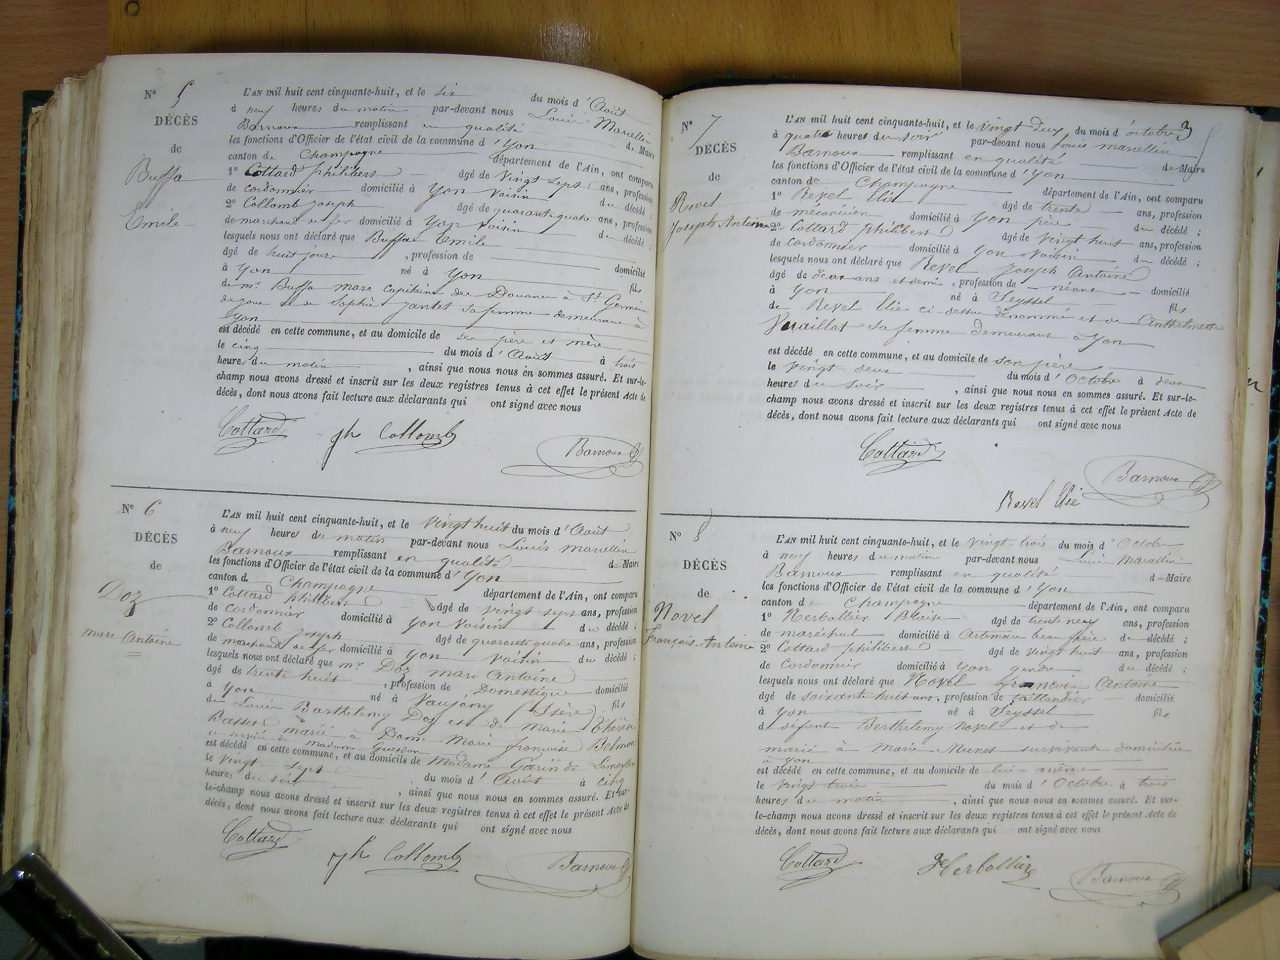 N° 5
DÉCÈS
de
Buffa
Emile
L'AN mil huit cent cinquante-huit, et le six du mois d'Août
à neuf heures du matin par-devant nous Louis Marcellin
Barnoux remplissant en qualité de Maire
les fonctions d'Officier de l'état civil de la commune d'Yon
canton de Champagne département de l'Ain, ont comparu
1° Cottard philibert âgé de vingt sept ans, profession
de cordonnier domicilié à Yon voisin du décédé
2° Collomb joseph âgé de quarante quatre ans, profession
de marchand de fer domicilié à Yon voisin du décédé ;
lesquels nous ont déclaré que Buffa Emile
âgé de huit jours, profession de domicilié
à Yon né à Yon fils
de Mr Buffa marc Capitaine des Douanes à St Germain
de joux et de Sophie Jantet sa femme demeurant à
Yon
est décédé en cette commune, et au domicile de ses père et mère
le cinq du mois d'Août à trois
heures du matin, ainsi que nous nous en sommes assuré. Et sur-le-
champ nous avons dressé et inscrit sur les deux registres tenus à cet effet le présent Acte de
décès, dont nous avons fait lecture aux déclarants qui ont signé avec nous
Cottard jh Collomb Barnoux
N° 6
DÉCÈS
de
Doz
marc Antoine
L'AN mil huit cent cinquante-huit, et le vingt huit du mois d'Août
à neuf heures du matin par-devant nous Louis marcellin
Barnoux remplissant en qualité de Maire
les fonctions d'Officier de l'état civil de la commune d'Yon
canton d Champagne département de l'Ain, ont comparu
1° Cottard philibert âgé de vingt sept ans, profession
de cordonnier domicilié à Yon voisin du décédé ;
2° Collomb joseph âgé de quarante quatre ans, profession
de marchand de fer domicilié à Yon voisin du décédé ;
lesquels nous ont déclaré que Mr Doz marc Antoine
âgé de trente huit, profession de Domestique domicilié
à Yon né à Vaujany (Isère) fils
de Louis Barthelemy Doz et de Marie
marié à Marie françoise
est décédé en cette commune, et au domicile de Madame
le vingt sept du mois d'Août à cinq
heures du soir, ainsi que nous nous en sommes assuré. Et sur-
le-champ nous avons dressé et inscrit sur les deux registres tenus à cet effet le présent Acte de
décès, dont nous avons fait lecture aux déclarants qui ont signé avec nous
Cottard jh Collomb Barnoux
3
N° 7
DÉCÈS
de
Revel
Joseph Antoine
L'AN mil huit cent cinquante-huit, et le vingt deux, du mois d'octobre
à quatre heures du soir par-devant nous Louis marcellin
Barnoux remplissant en qualité de Maire
les fonctions d'Officier de l'état civil de la commune d'Yon
canton de Champagne département de l'Ain, ont comparu
1° Revel Elie âgé de trente ans, profession
de mécanicien domicilié à Yon père du décédé ;
2° Cottard philibert âgé de vingt huit ans, profession
de cordonnier domicilié à Yon voisin du décédé ;
lesquels nous ont déclaré que Revel Joseph Antoine
âgé de deux ans et demi, profession de néant domicilié
à Yon né à Seyssel fils
de Revel Elie ci-dessus dénommé et de Anthelmette
Vuaillat sa femme demeurant à Yon
est décédé en cette commune, et au domicile de son père
le vingt deux du mois d'Octobre à deux
heures du soir, ainsi que nous nous en sommes assuré. Et sur-le-
champ nous avons dressé et inscrit sur les deux registres tenus à cet effet le présent Acte de
décès, dont nous avons fait lecture aux déclarants qui ont signé avec nous
Cottard Barnoux
Revel Elie
N° 8
DÉCÈS
de
Novel
Français Antoine
L'AN mil huit cent cinquante-huit, et le vingt trois du mois d'Octobre
à neuf heures du matin par-devant nous Louis Marcellin
Barnoux remplissant en qualité de Maire
les fonctions d'Officier de l'état civil de la commune d'Yon
canton d Champagne département de l'Ain, ont comparu
1° Herbollier Blaise âgé de trente neuf ans, profession
de maréchal domicilié à Artemare beau frère du décédé ;
2° Cottard philibert âgé de vingt huit ans, profession
de cordonnier domicilié à Yon gendre du décédé ;
lesquels nous ont déclaré que Novel françois Antoine
âgé de soixante huit ans, profession de taillandier domicilié
à Yon né à Seyssel fils
de défunt Berthelemy Novel et de
marié à Marie Munet survivante domiciliée
à Yon
est décédé en cette commune, et au domicile de lui même
le vingt trois du mois d'Octobre à trois
heures du matin, ainsi que nous nous en sommes assuré. Et sur-
le-champ nous avons dressé et inscrit sur les deux registres tenus à cet effet le présent Acte de
décès, dont nous avons fait lecture aux déclarants qui ont signé avec nous
Cottard Herbollier Barnoux